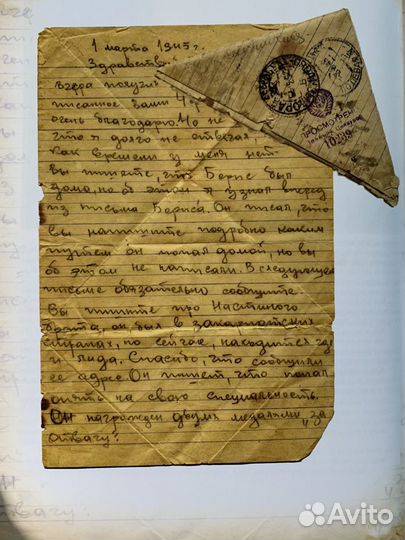 1 марта 1945 г.
Здравствуй
Вчера получил
писанное Вами 4
очень благодарю. Но не
что я долго не отвечал
как времени у меня нет
Вы пишете, что Борис был
дома, но об этом я узнал вперед
из письма Бориса. Он писал, что
вы напишите подробно каким
путем он попал домой, но вы
об этом не написали. В следующем
письме обязательно сообщите.
Вы пишите про Настиного
брата, он был в закарпатских
странах, но сейчас находится где
и Лида. Спасибо, что сообщили
ее адрес. Он пишет, что попал
опять на свою специальность.
Он награжден двумя медалями "за
отвагу".
ПРОСМОТРЕНО
10289
Avito